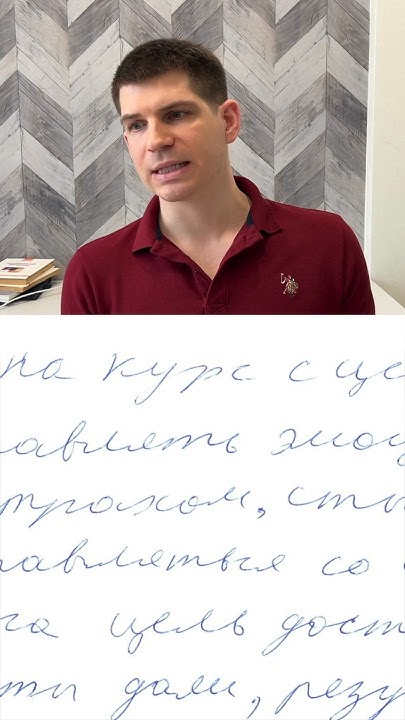 на курс с це
авлять эмоц
трахом, сты
авляться со
га цель дост
ты дали, резу